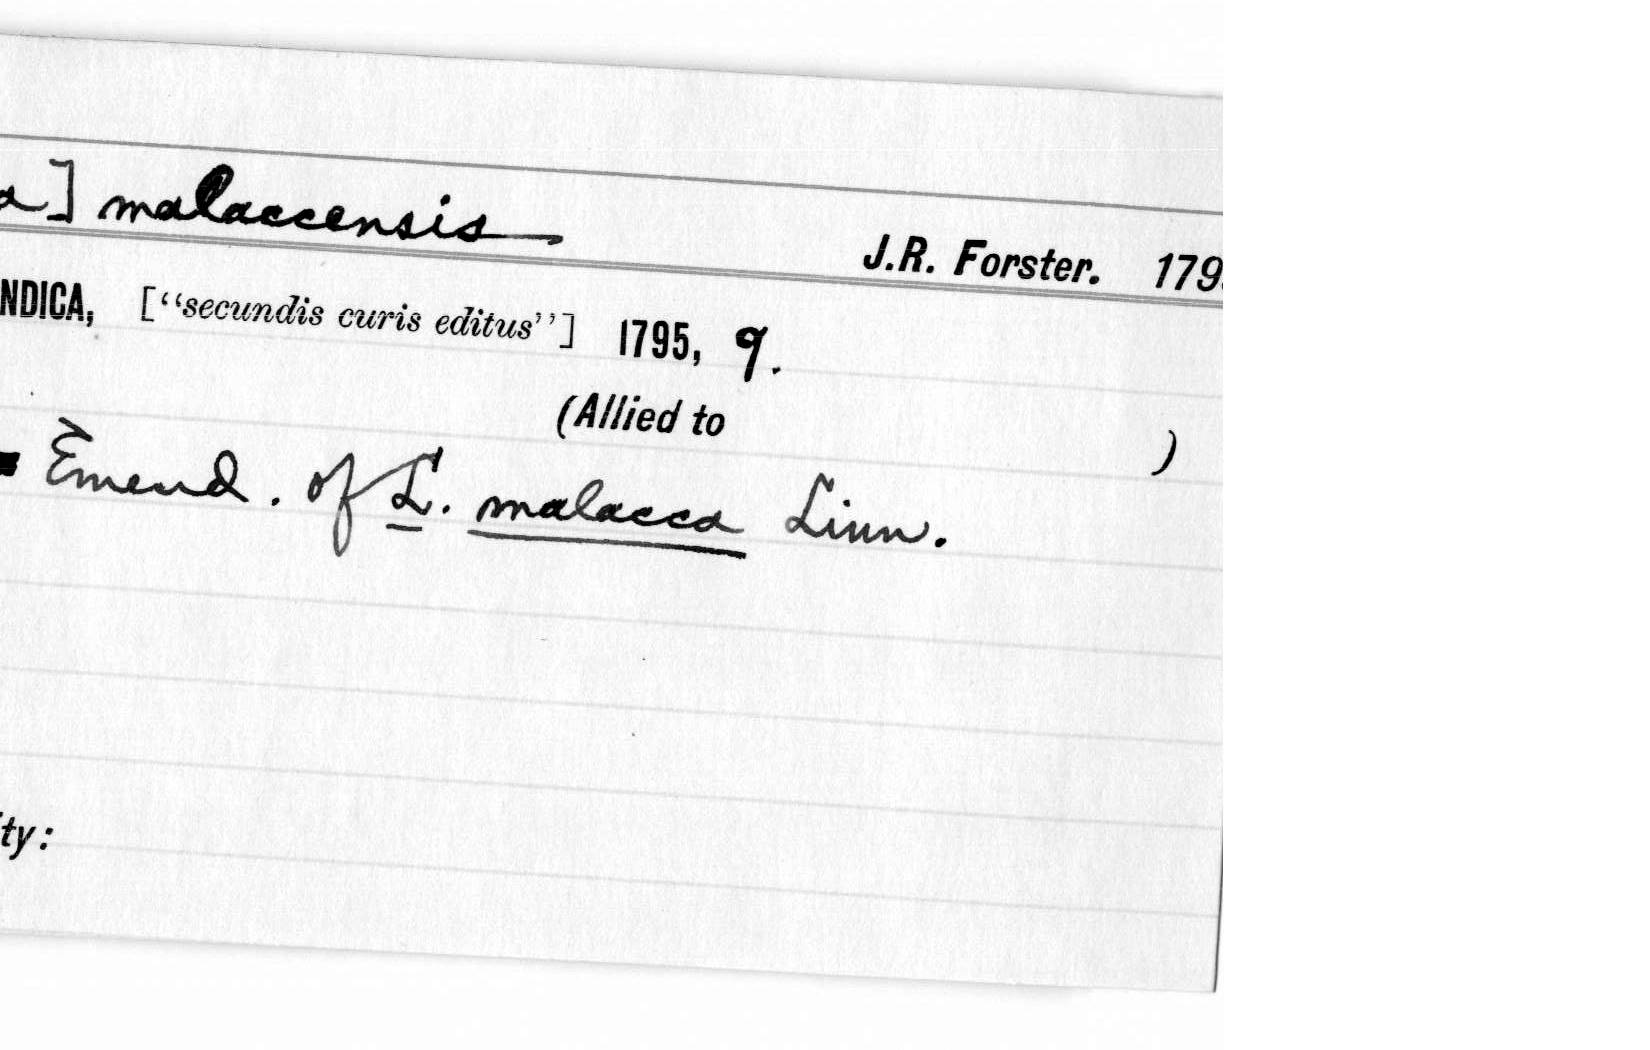 a] malaccensis J.R. Forster. 179
NDICA, [“secundis curis editus”] 1795, 9.
(Allied to )
= Emend. of L. malacca Linn.
ity: